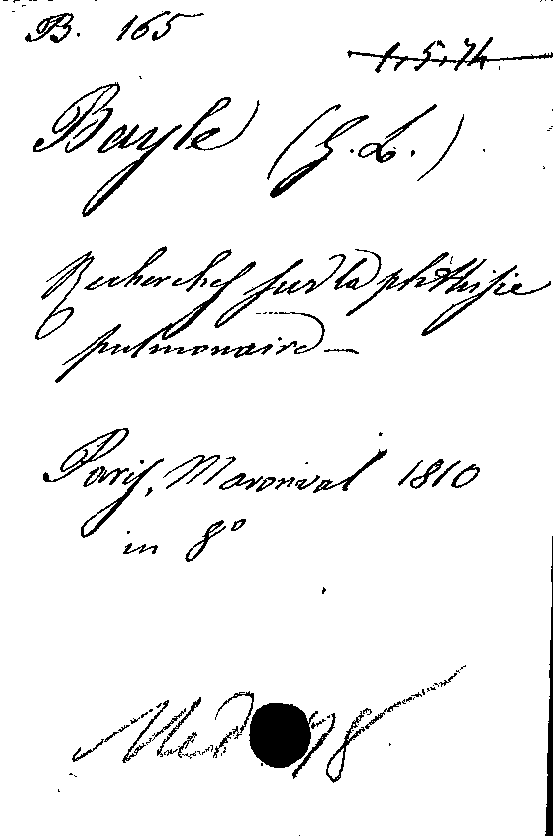 B. 165
1.5.74
Bayle (G. L.)
Recherches sur la phthisie
pulmonaire
Paris, Maronval 1810
in 8°
Med 78